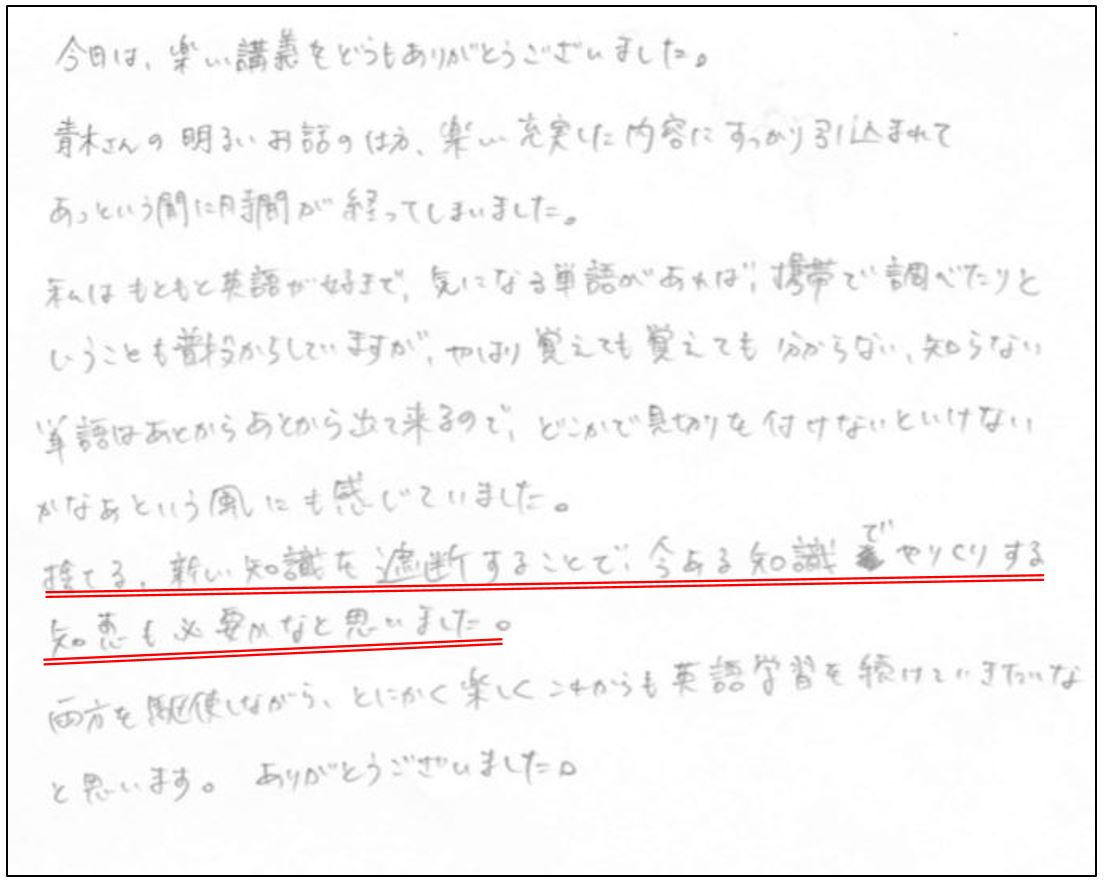 今日は、楽い講義をどうもありがとうございました。
青木さんの明るいお話のは方、楽い充実した内容にすっかり引込まれて
あっという間に時間が経ってしまいました。
私はもともと英語が好きで、気になる単語があれば、携帯で調べたりと
いうことも普段からしていますが、やはり覚えても覚えても分からない、知らない
単語はあとからあとから出て来るので、どこかで見切りを付けないといけない
かなあという風にも感じていました。
捨てる、新い知識を遮断することで、今ある知識でやりくりする
知恵も必要かなと思いました。
両方を駆使しながら、とにかく楽しくこれからも英語学習を続けていきたいな
と思います。 ありがとうございました。